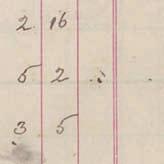 2 16
5 2
3 5